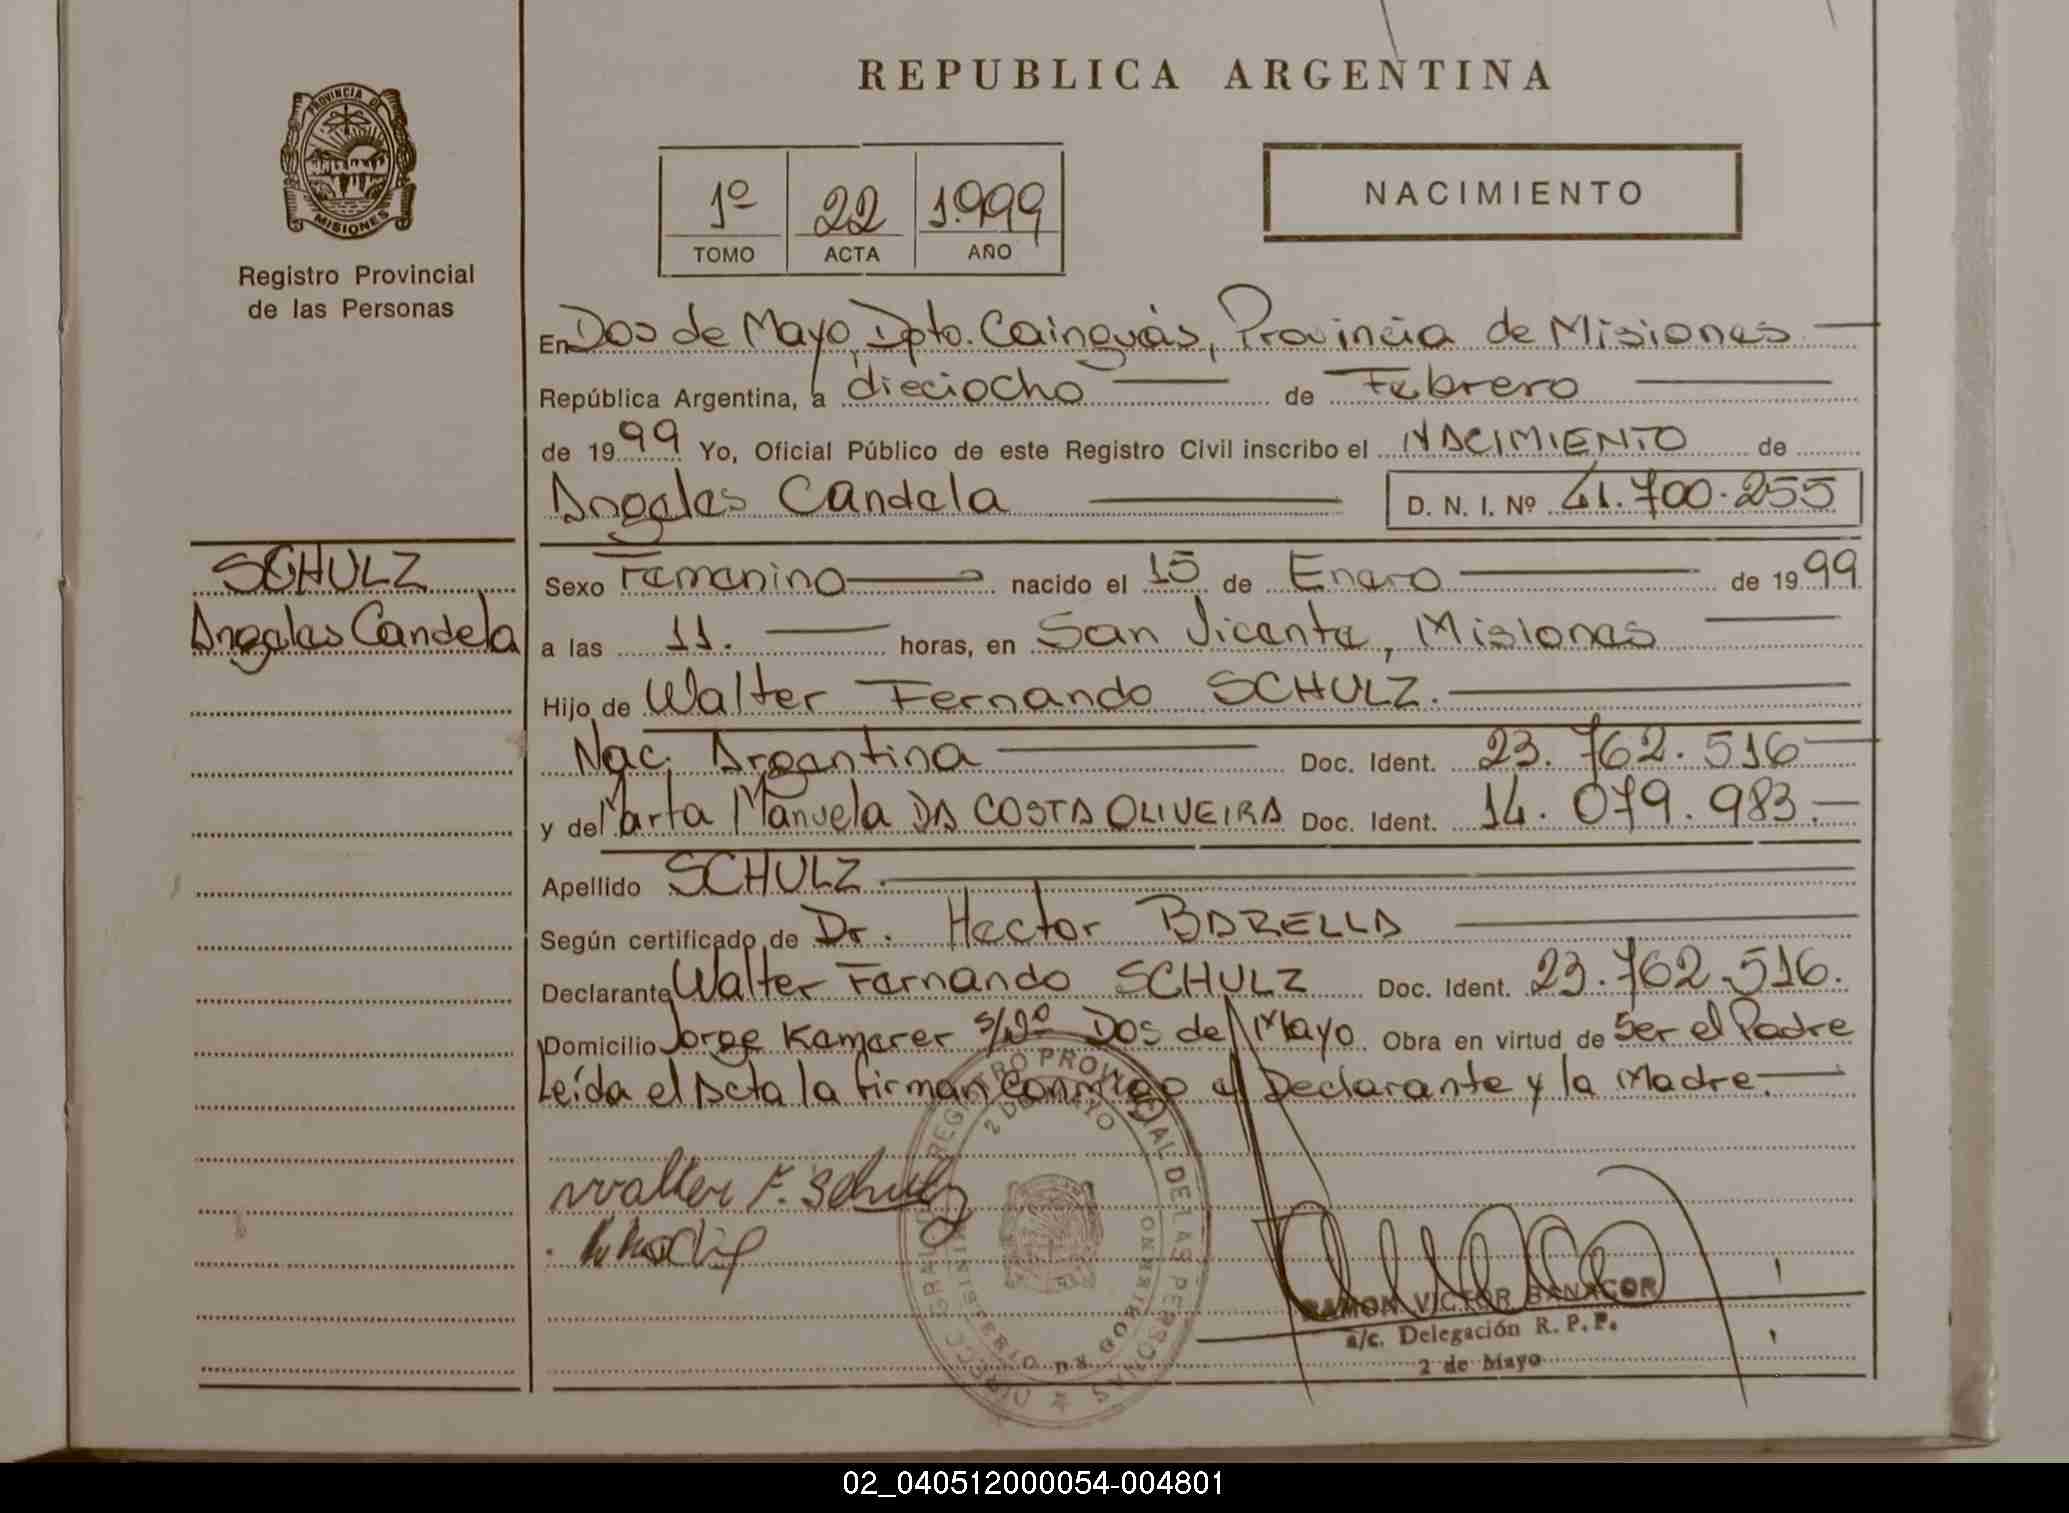 REPUBLICA ARGENTINA
PROVINCIA DE MISIONES
Registro Provincial
de las Personas
1º 22 1.999
TOMO ACTA AÑO
NACIMIENTO
En Dos de Mayo, Dpto. Cainguás, Provincia de Misiones
República Argentina, a dieciocho de Febrero
de 1999 Yo, Oficial Público de este Registro Civil inscribo el NACIMIENTO de
Angeles Candela D. N. I. Nº 41.700.255
SCHULZ
Angeles Candela
Sexo Femenino nacido el 15 de Enero de 1999
a las 11. horas, en San Vicente, Misiones
Hijo de Walter Fernando SCHULZ.
Nac. Argentina Doc. Ident. 23.762.516
y de Marta Manuela DA COSTA OLIVEIRA Doc. Ident. 14.079.983.
Apellido SCHULZ.
Según certificado de Dr. Hector BARELLA
Declarante Walter Fernando SCHULZ Doc. Ident. 23.762.516.
Domicilio Jorge Kamerer s/nº Dos de Mayo Obra en virtud de Ser el Padre
Leída el Acta la firman conmigo el Declarante y la Madre.
Walter F. Schulz
REGISTRO PROVINCIAL DE LAS PERSONAS
2 DE MAYO
RAMON VICTOR BANACOR
a/c. Delegación R. P. P.
2 de Mayo
02_040512000054-004801